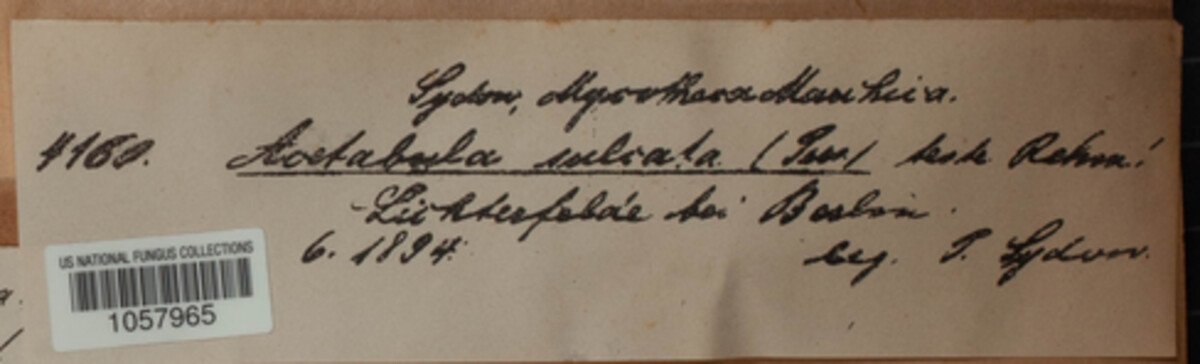 Sydow, Mycotheca Marchica.
4160. Acetabula sulcata (Pers.) teste Rehm!
Lichterfelde bei Berlin.
6. 1894. leg. P. Sydow.
US NATIONAL FUNGUS COLLECTIONS
1057965
a.